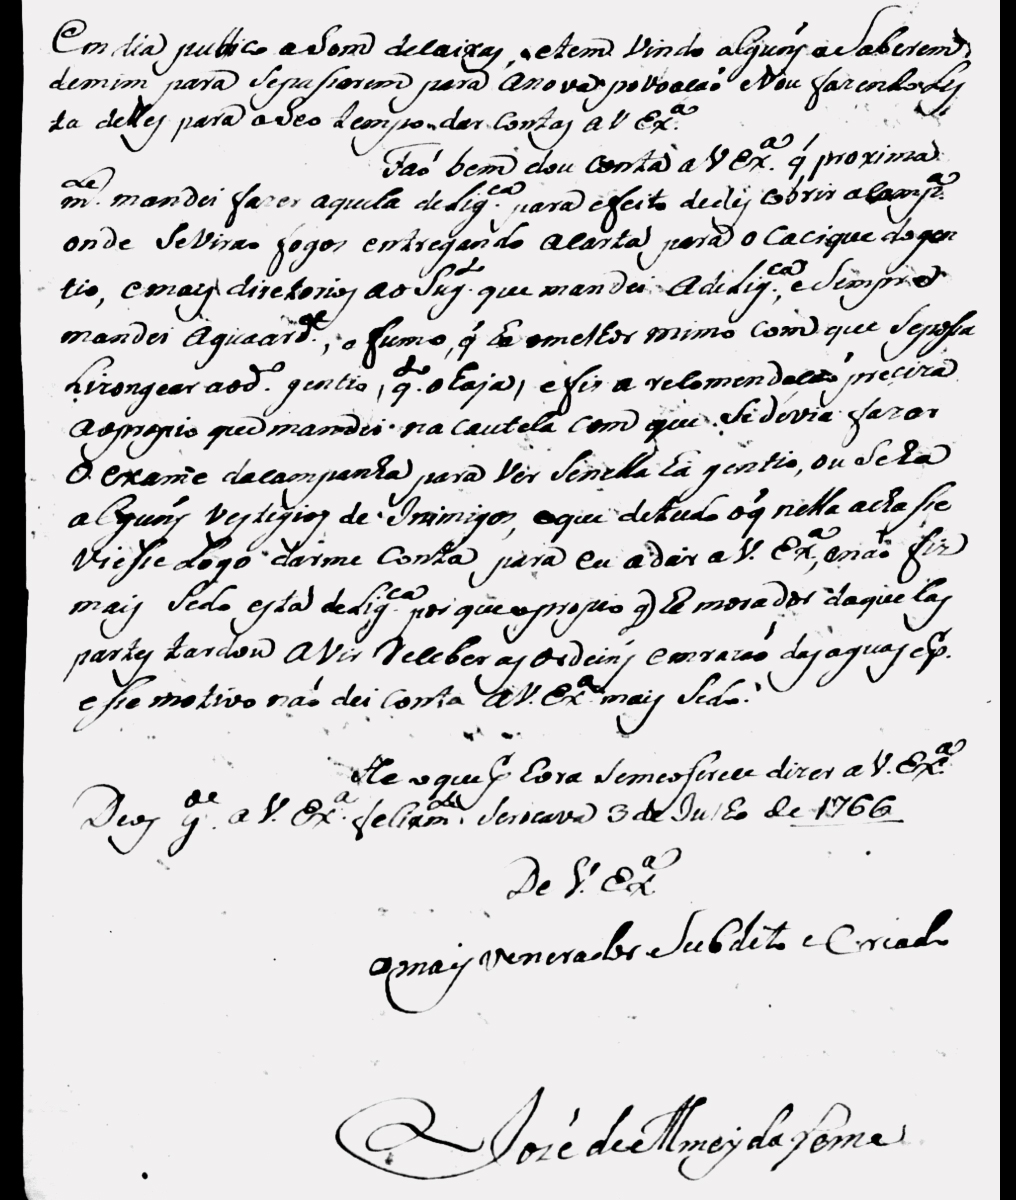 Em dia publico a Som de caixas, e tem vindo alguns a Saberem
demim para Sepassarem para anova povoacaó e vou fazendo Lis
ta delles para a Seo tempo dar contas a V Ex.ª
Taó bem dou conta a V Ex.ª q̃ proxima
m.te mandei fazer aquela delig.ca para efeito de des cobrir a Camp.ª
onde Se virao fogos entregando a Carta para o Cacique do gen
tio, e mais diretorios ao Sug.to que mandei a delig.ca, e Sempre
mandei aguaard.te, e fumo, q́ he o melhor mimo com que Se possa
Lizongear ao d.º gentio, q.do o haja, e fiz a recomendacaó preciza
ao propio que mandei na cautela com que Se devia fazer
O exame da campanha para ver Se nella ha gentio, ou Se ha
alguns vestigios de Inimigos, e que de tudo o q́ nella achasse
viesse Logo darme Conta para eu a dar a V. Ex.ª, e naó fiz
mais Sedo esta delig.ca por que o propio q́ he morador daquelas
partes tardou a vir Receber as ordeins em razaó das aguas, e p.
esse motivo naó dei conta a V. Ex.ª mais Sedo.
He o que por hora Se me oferece dizer a V. Ex.ª
Deos g.de a V. Ex.ª felizm.te Serocava 3 de Julho de 1766
De V. Ex.ª
o mais venerador e Subdito e Criado
José de Almeyda Leme